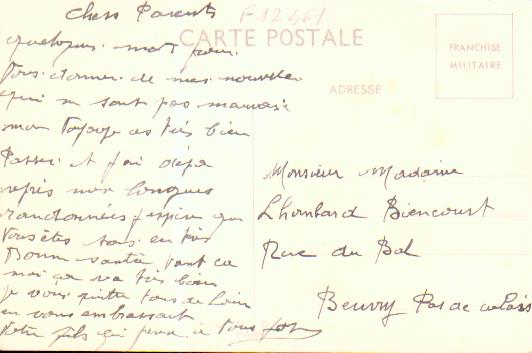 Chers Parents
F12461
CARTE POSTALE
FRANCHISE
MILITAIRE
ADRESSE
quelques mot pour
vous donner de mes nouvelles
qui ne sont pas mauvais
mon voyage as très bien
Passer et j'ai déja
repris mes longues
randonnées j'espère que
vous êtes tous en très
Bonne santé pour ce
moi ça va très bien
Je vous quitte tous de Loin
en vous embrassant
votre fils qui pense à vous
Monsieur Madame
Lhombard Biencourt
Rue du Bol
Beuvry Pas de calais